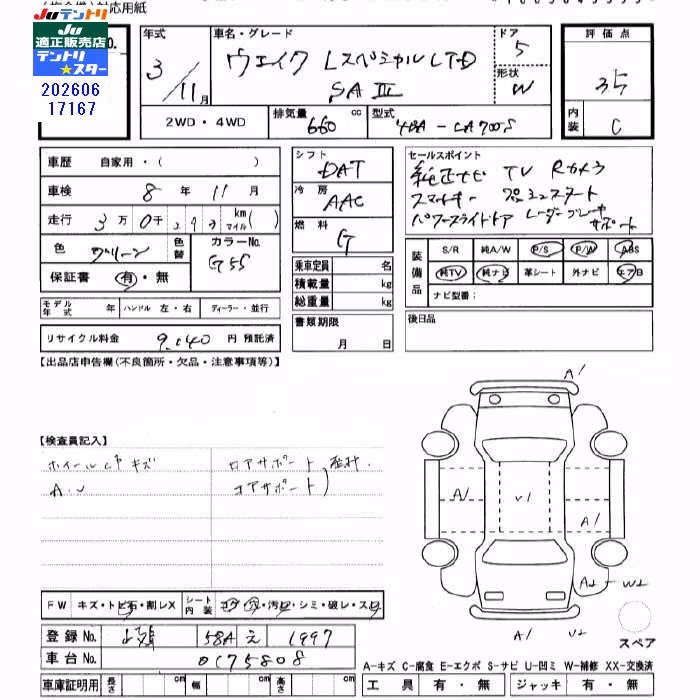 対応用紙
Juテントリ
Ju適正販売店
テントリ
★スター
202606
17167
年式
3/11月
車名・グレード
ウェイク LスペシャルLTD
SAⅢ
ドア
5
形状
W
評価点
35
内装
C
2WD・4WD
排気量 660 cc
型式 4BA-LA700S
車歴 自家用・( )
車検 8年 11月
走行 3万0千293 km マイル( )
色 グリーン
色替
カラーNo. G55
保証書 有・無
モデル年式 年
ハンドル 左・右
ディーラー・並行
リサイクル料金 9,040円 預託済
シフト
DAT
冷房
AAC
燃料
G
乗車定員 名
積載量 kg
総重量 kg
書類期限
月 日
セールスポイント
純正ナビ TV Rカメラ
スマートキー プッシュスタート
パワースライドドア レーダーブレーキサポート
装備品
S/R 純A/W P/S P/W ABS
純TV 純ナビ 革シート 外ナビ エアB
ナビ型番:
後日品
【出品店申告欄(不良箇所・欠品・注意事項等)】
【検査員記入】
ホイールCP キズ
A.U
ロアサポート
コアサポート
A1
A1
V1
A1
A2 W2
A1
U2
FW キズ・トビ石・割レX
シート内装 コゲ・穴・汚レ・シミ・破レ・スレ
登録No. 58A え 1997
車台No. 0175808
車庫証明用 長さ cm 幅 cm 高さ cm
スペア
A-キズ C-腐食 E-エクボ S-サビ U-凹ミ W-補修 XX-交換済
工具 有・無 ジャッキ 有・無